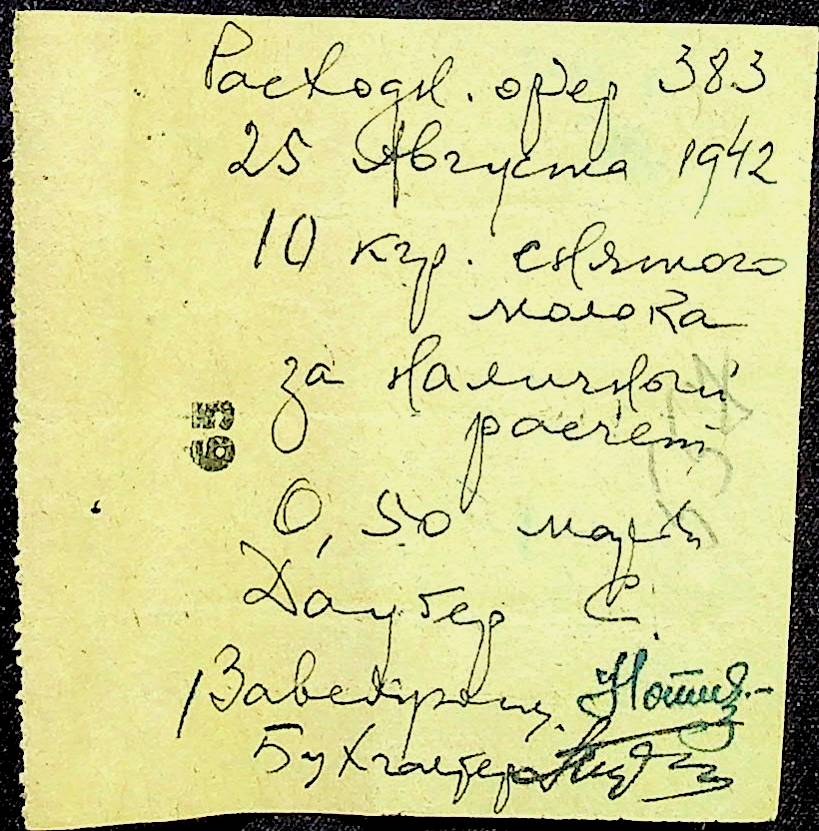 Расходн. ордер 383
25 Августа 1942
10 кгр. снятого
молока
за наличный
расчет
65
0,50 марк
Даубер С.
Заведующ.
Бухгалтер